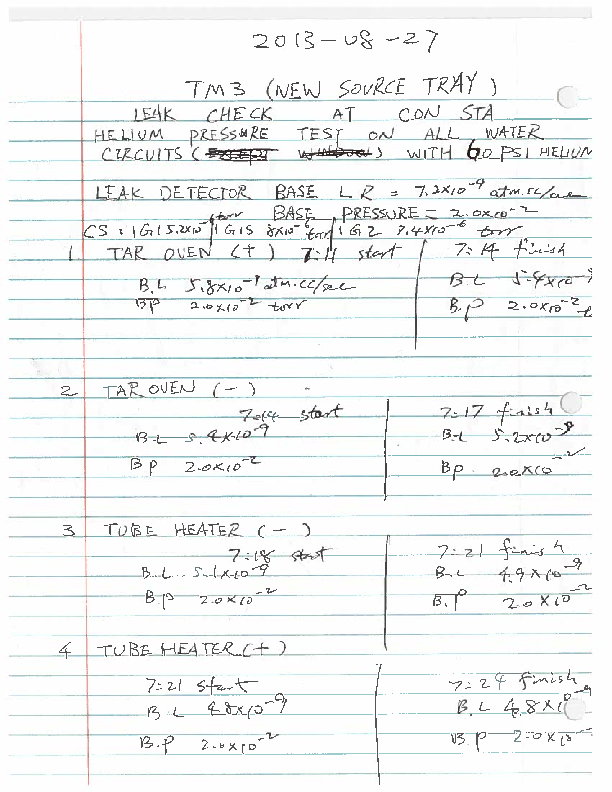 2013-08-27
TM3 (NEW SOURCE TRAY)
LEAK CHECK AT CON STA
HELIUM PRESSURE TEST ON ALL WATER
CIRCUITS (EXCEPT WINDOW) WITH 60 PSI HELIUM
LEAK DETECTOR BASE L R = 7.2x10⁻⁹ atm.cc/sec
BASE PRESSURE = 2.0x10⁻²
CS = IG1 5.2x10 torr IG1S 8x10 torr IG2 7.4x10⁻⁶ torr
1 TAR OVEN (+) 7:11 start 7:14 finish
B.L 5.8x10⁻⁹ atm.cc/sec B.L 5.4x10⁻⁹
BP 2.0x10⁻² torr B.P 2.0x10⁻²
2 TAR OVEN (-)
7:14 start 7:17 finish
B-L 5.4x10⁻⁹ B-L 5.2x10⁻⁹
BP 2.0x10⁻² BP 2.0x10⁻²
3 TUBE HEATER (-)
7:18 start 7:21 finish
B.L. 5.1x10⁻⁹ B.L 4.9x10⁻⁹
B.P 2.0x10⁻² B.P 2.0x10⁻²
4 TUBE HEATER (+)
7:21 start 7:24 finish
B.L 4.8x10⁻⁹ B.L 4.8x10⁻⁹
B.P 2.0x10⁻² B.P 2.0x10⁻